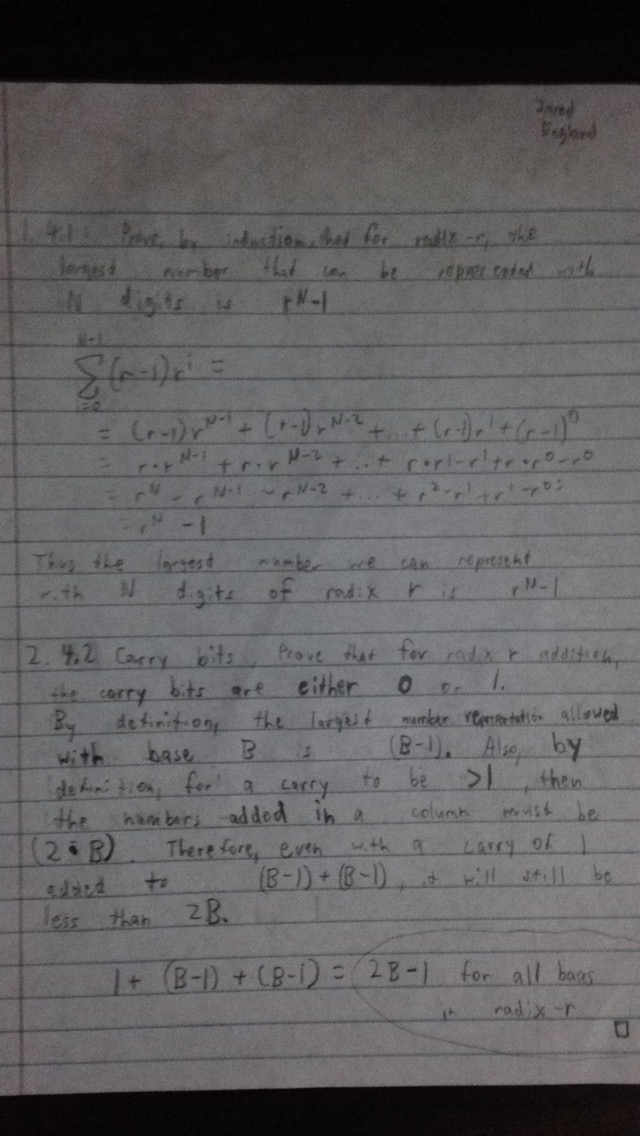 Jared
England
1. 4.1: Prove, by induction, that for radix-r, the
largest number that can be represented with
N digits is r^N-1
N-1
∑ (r-1)r^i =
i=0
= (r-1)r^N-1 + (r-1)r^N-2 + ... + (r-1)r^1 + (r-1)^0
= r·r^N-1 + r·r^N-2 + ... + r·r^1-r^1+r·r^0-r^0
= r^N - r^N-1 - r^N-2 + ... + r^2-r^1+r^1-r^0=
= r^N - 1
Thus the largest number we can represent
with N digits of radix r is r^N-1
2. 4.2 Carry bits, Prove that for radix r addition,
the carry bits are either 0 or 1.
By definition, the largest number representation allowed
with base B is (B-1). Also, by
definition, for a carry to be >1, then
the numbers added in a column must be
(2·B). Therefore, even with a carry of 1
added to (B-1)+(B-1), it will still be
less than 2B.
1+ (B-1) + (B-1) = 2B-1 for all
in radix-r □